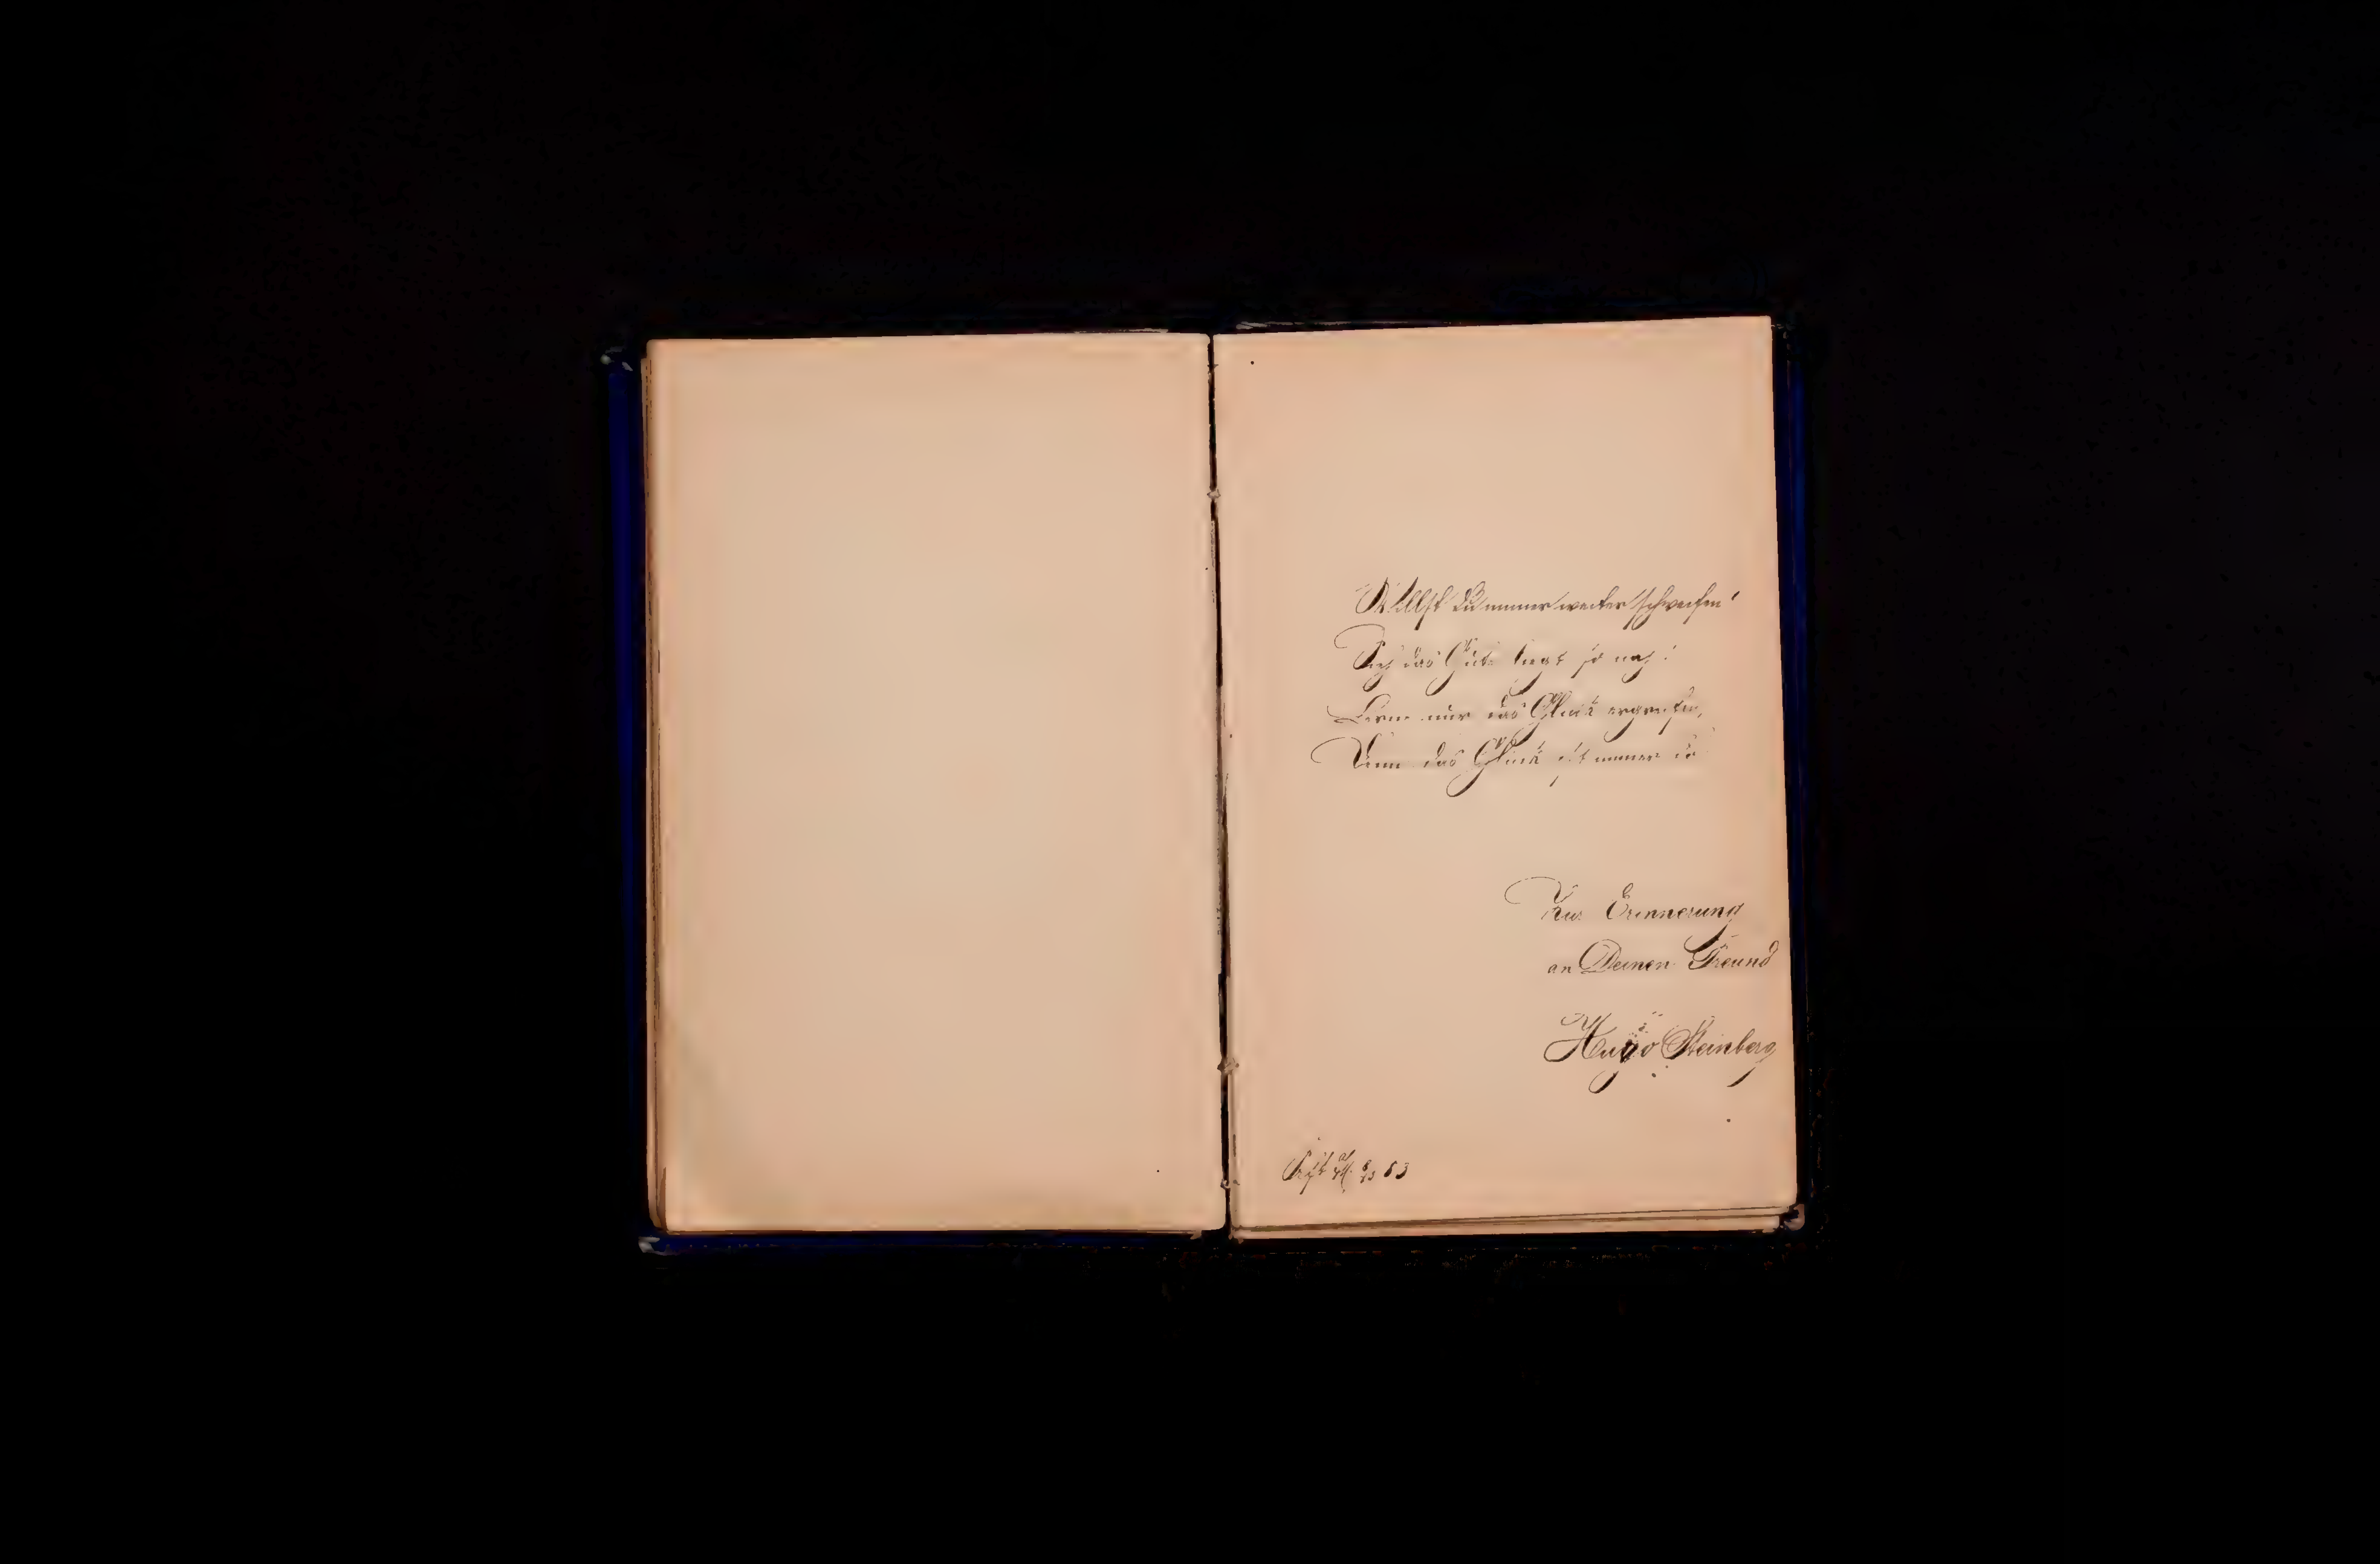 Willst du immer weiter schweifen?
Sieh das Gute liegt so nah!
Lerne nur das Glück ergreifen,
Denn das Glück ist immer da
Zur Erinnerung
an Deinen Freund
Hugo Steinberg
83